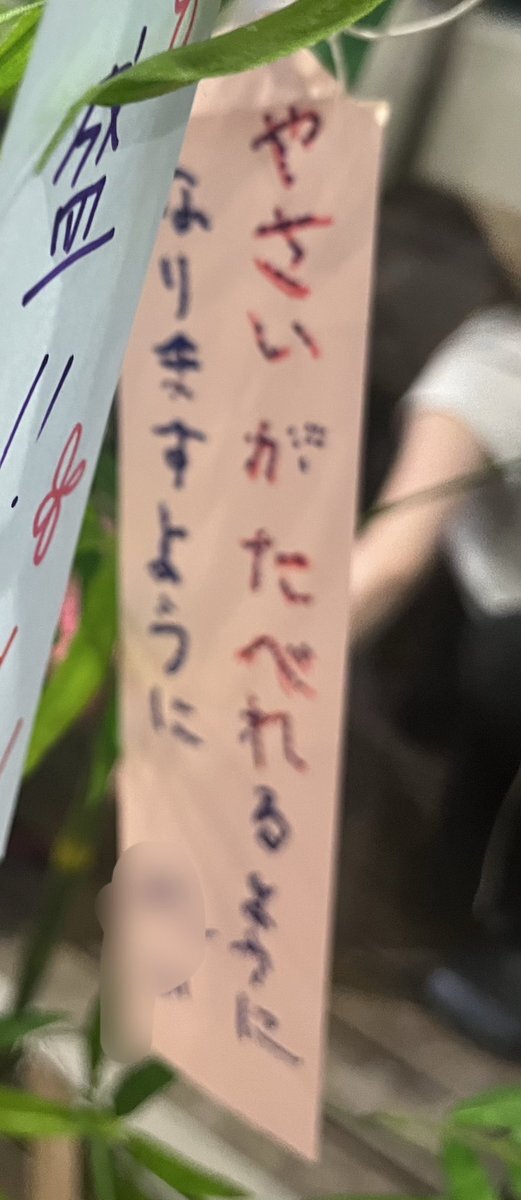 やさいがたべれるように
なりますように
盛!!